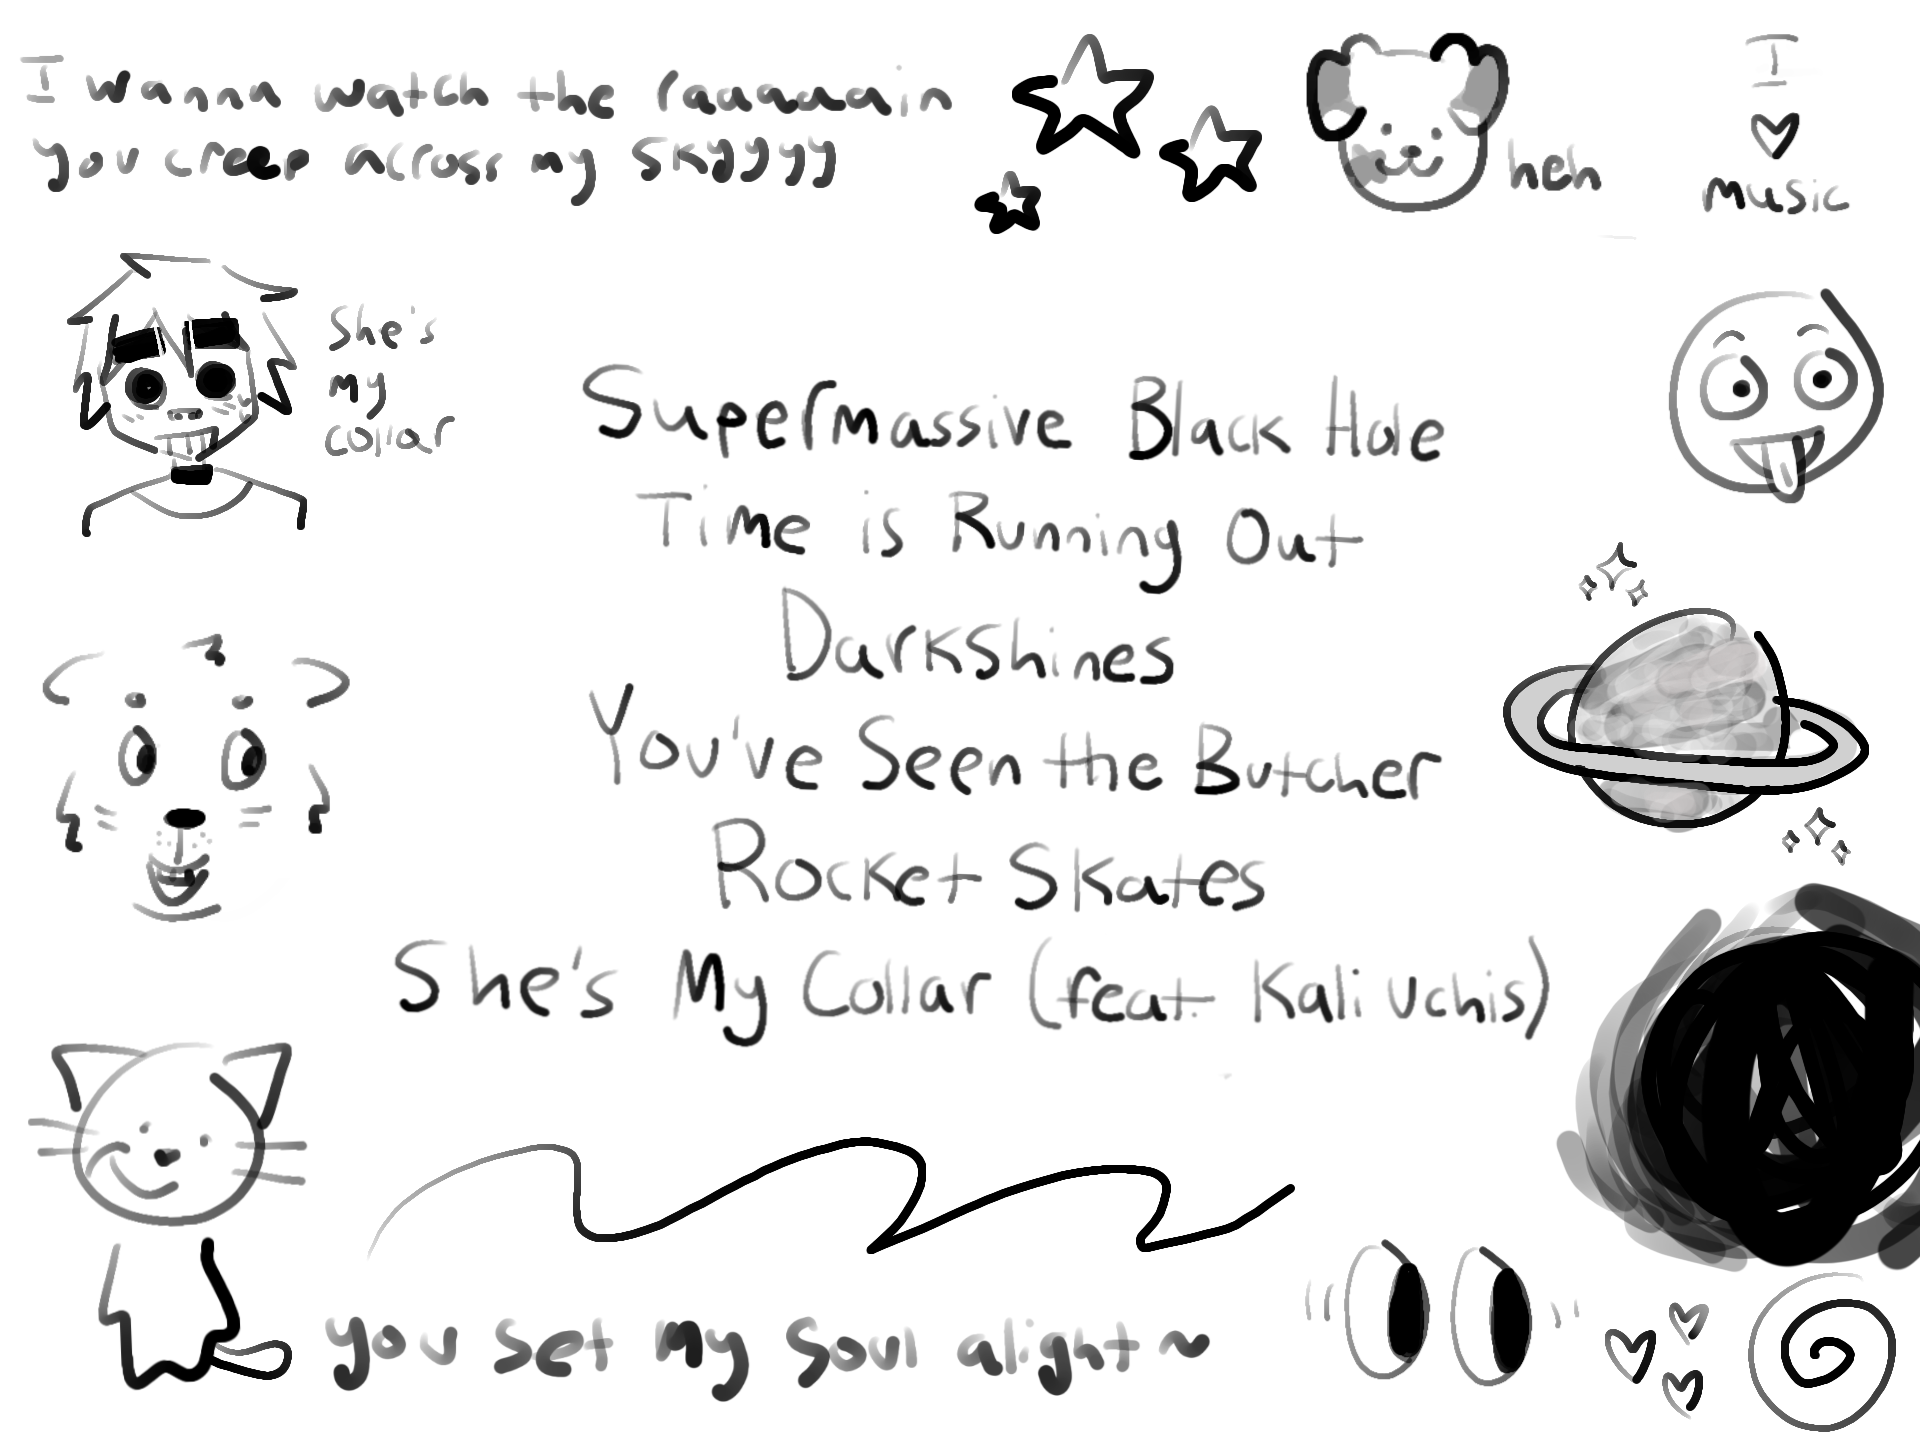 I wanna watch the raaaaain
you creep across my skyyyy
heh
I
music
She's
my
collar
Supermassive Black Hole
Time is Running Out
Darkshines
You've Seen the Butcher
Rocket Skates
She's My Collar (feat. Kali Uchis)
you set my soul alight~